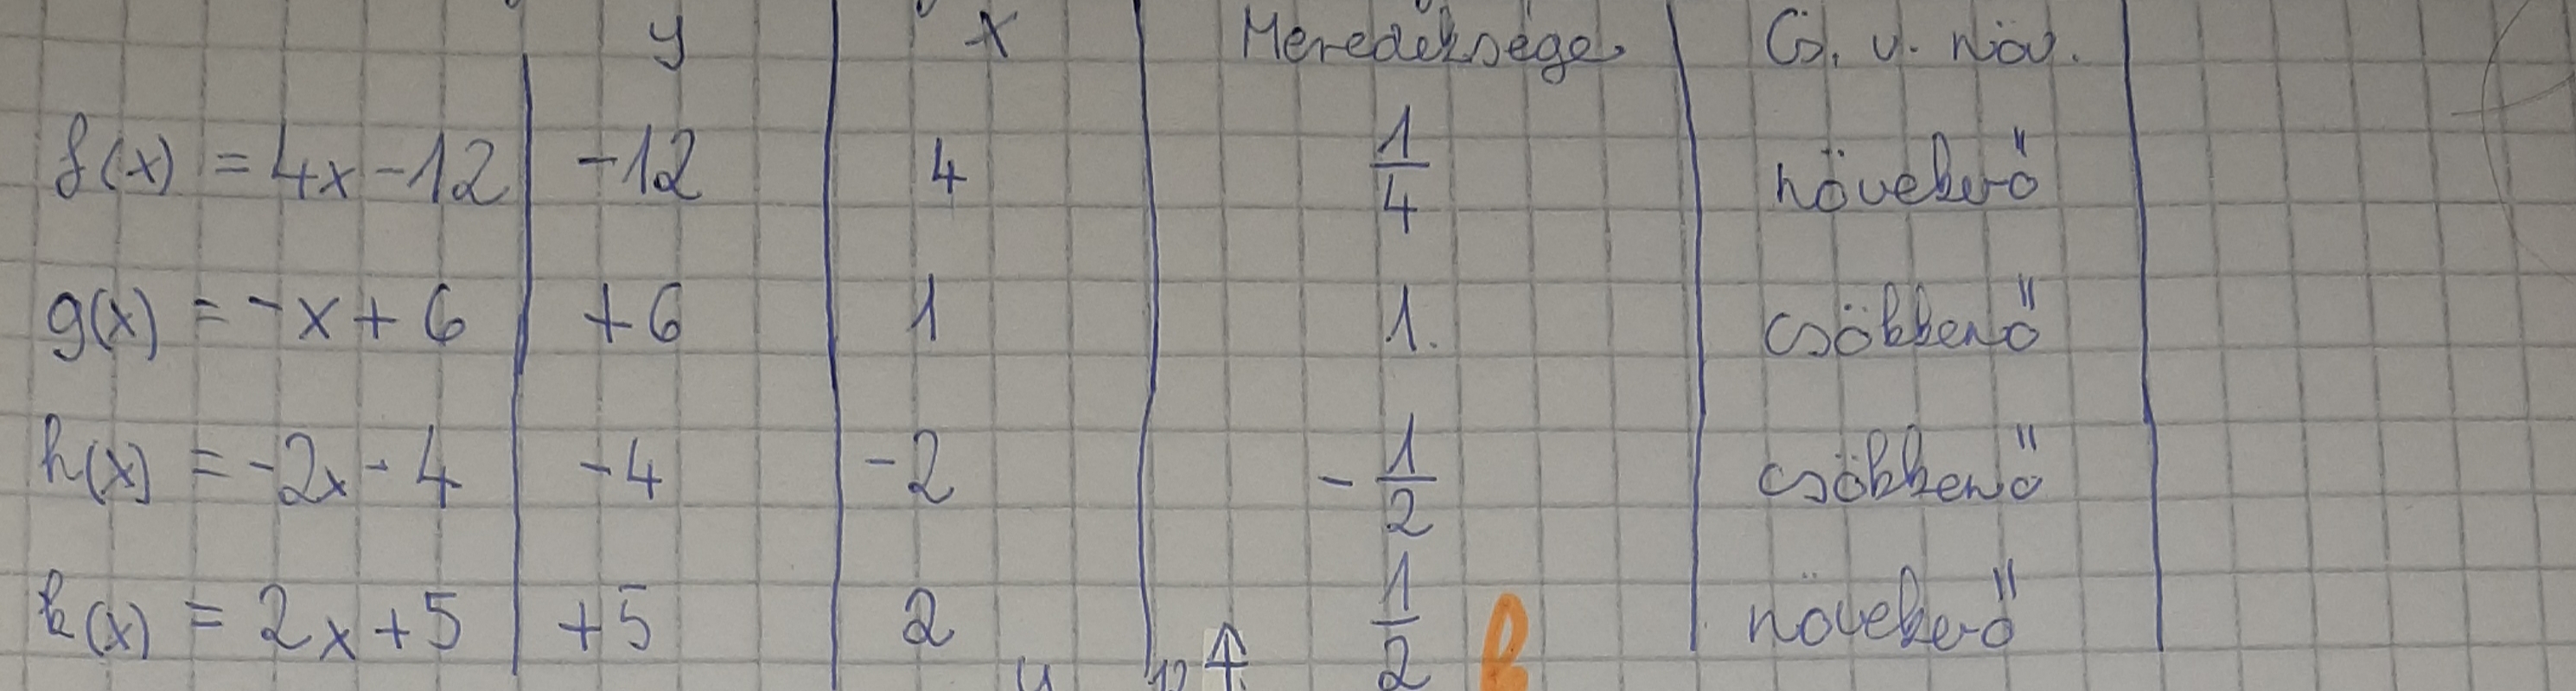 y x Meredeksége Cs. v. növ.
f(x) = 4x-12 -12 4 1/4 növekvő
g(x) = -x+6 +6 1 1. csökkenő
h(x) = -2x-4 -4 -2 -1/2 csökkenő
k(x) = 2x+5 +5 2 1/2 növekvő
12